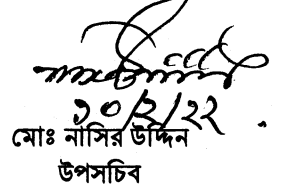 ১০/২/২২
মোঃ নাসির উদ্দিন
উপসচিব